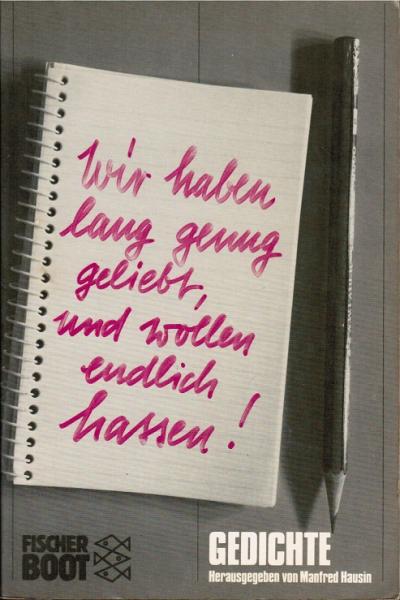 Wir haben
lang genug
geliebt,
und wollen
endlich
hassen!
FISCHER
BOOT
GEDICHTE
Herausgegeben von Manfred Hausin